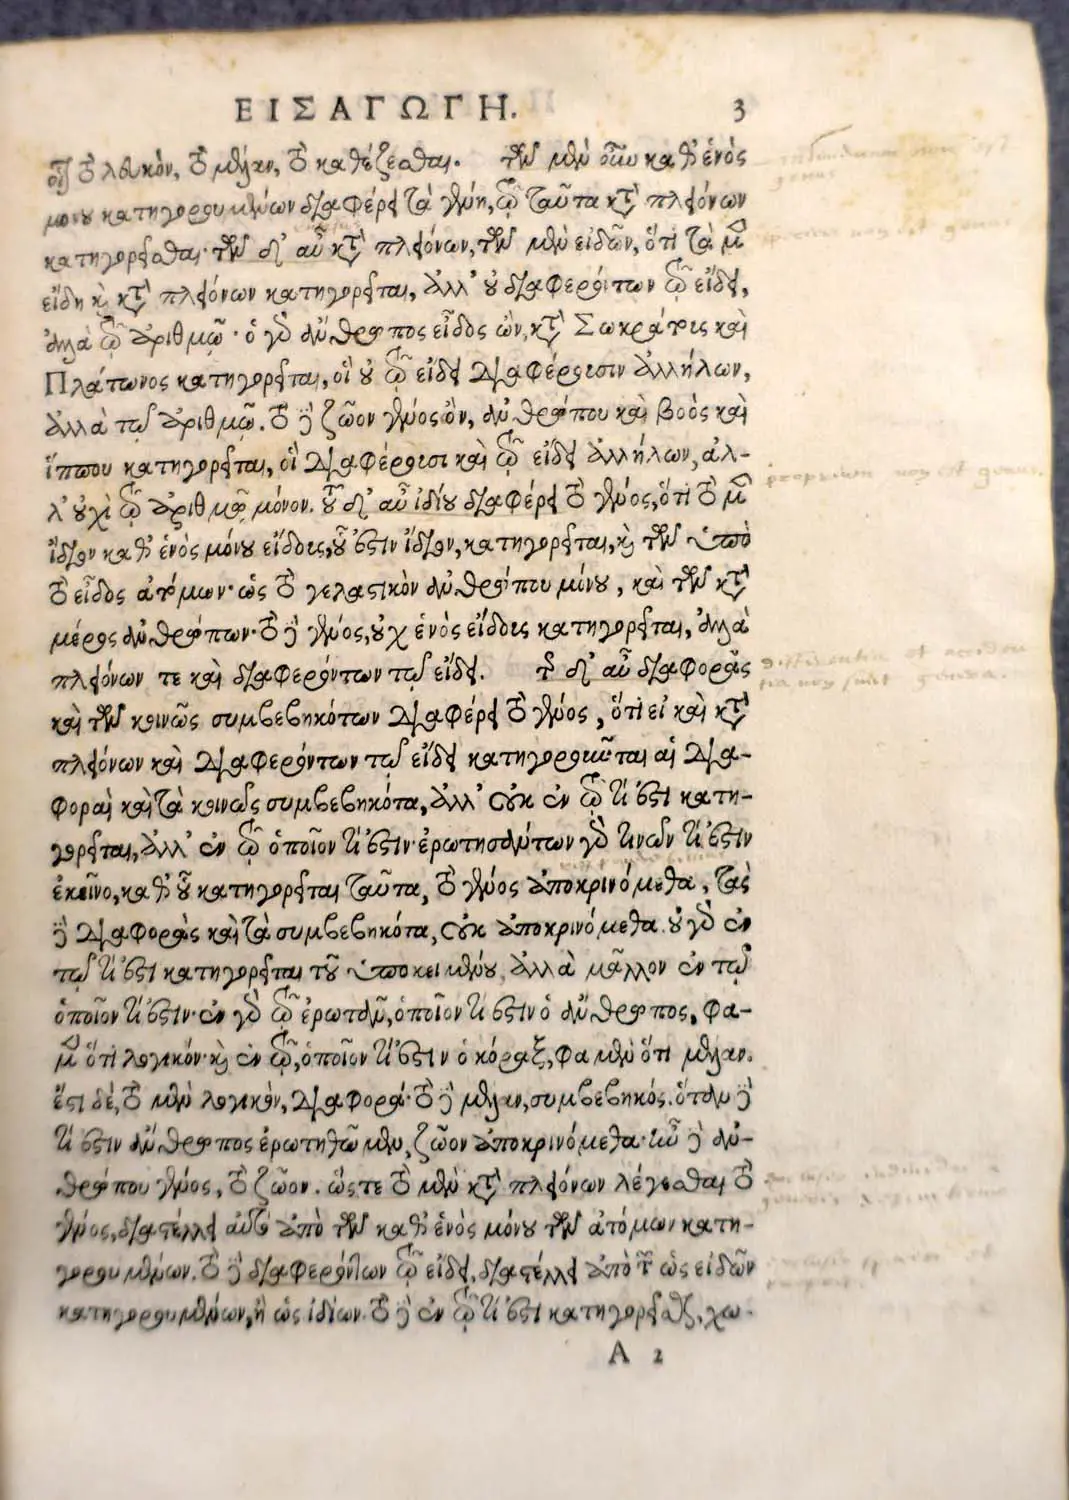 ΕΙΣΑΓΩΓΗ. 3
οἷον τὸ λευκὸν, τὸ μέλαν, τὸ καθέζεσθαι. τῶν μὲν οὖν καθ' ἑνὸς
μόνου κατηγορουμένων διαφέρει τὰ γένη, τῷ ταῦτα κατὰ πλειόνων
κατηγορεῖσθαι· τῶν δ' αὖ κατὰ πλειόνων, τῶν μὲν εἰδῶν, ὅτι τὰ μὲν
εἴδη καὶ κατὰ πλειόνων κατηγορεῖται, ἀλλ' οὐ διαφερόντων τῷ εἴδει,
ἀλλὰ τῷ ἀριθμῷ· ὁ γὰρ ἄνθρωπος εἶδος ὢν, κατὰ Σωκράτους καὶ
Πλάτωνος κατηγορεῖται, οἳ οὐ τῷ εἴδει διαφέρουσιν ἀλλήλων,
ἀλλὰ τῷ ἀριθμῷ. τὸ δὲ ζῶον γένος ὂν, ἀνθρώπου καὶ βοὸς καὶ
ἵππου κατηγορεῖται, οἳ διαφέρουσι καὶ τῷ εἴδει ἀλλήλων, ἀλ-
λ' οὐχὶ τῷ ἀριθμῷ μόνον. τοῦ δ' αὖ ἰδίου διαφέρει τὸ γένος, ὅτι τὸ μὲν
ἴδιον καθ' ἑνὸς μόνου εἴδους, οὗ ἐστὶν ἴδιον, κατηγορεῖται, καὶ τῶν ὑπὸ
τὸ εἶδος ἀτόμων· ὡς τὸ γελαστικὸν ἀνθρώπου μόνου, καὶ τῶν κατὰ
μέρος ἀνθρώπων· τὸ δὲ γένος, οὐχ ἑνὸς εἴδους κατηγορεῖται, ἀλλὰ
πλειόνων τε καὶ διαφερόντων τῷ εἴδει. τῆς δ' αὖ διαφορᾶς
καὶ τῶν κοινῶς συμβεβηκότων διαφέρει τὸ γένος, ὅτι εἰ καὶ κατὰ
πλειόνων καὶ διαφερόντων τῷ εἴδει κατηγοροῦνται αἱ δια-
φοραὶ καὶ τὰ κοινῶς συμβεβηκότα, ἀλλ' οὐκ ἐν τῷ τί ἐστι κατη-
γορεῖται, ἀλλ' ἐν τῷ ὁποῖον τί ἐστιν· ἐρωτησάντων γὰρ τινῶν τί ἐστιν
ἐκεῖνο, καθ' οὗ κατηγορεῖται ταῦτα, τὸ γένος ἀποκρινόμεθα, τὰς
δὲ διαφορὰς καὶ τὰ συμβεβηκότα, οὐκ ἀποκρινόμεθα. οὐ γὰρ ἐν
τῷ τί ἐστι κατηγορεῖται τοῦ ὑποκειμένου, ἀλλὰ μᾶλλον ἐν τῷ
ὁποῖον τί ἐστιν· ἐν γὰρ τῷ ἐρωτᾶν, ὁποῖον τί ἐστιν ὁ ἄνθρωπος, φα-
μὲν ὅτι λογικόν· καὶ ἐν τῷ, ὁποῖον τί ἐστιν ὁ κόραξ, φαμὲν ὅτι μέλαν.
ἔστι δὲ, τὸ μὲν λογικὸν, διαφορά· τὸ δὲ μέλαν, συμβεβηκός. ὅταν δὲ
τί ἐστιν ἄνθρωπος ἐρωτηθῶμεν, ζῶον ἀποκρινόμεθα· ἦν δὲ ἀν-
θρώπου γένος, τὸ ζῶον. ὥστε τὸ μὲν κατὰ πλειόνων λέγεσθαι τὸ
γένος, διαστέλλει αὐτὸ ἀπὸ τῶν καθ' ἑνὸς μόνου τῶν ἀτόμων κατη-
γορουμένων. τὸ δὲ διαφερόντων τῷ εἴδει, διαστέλλει ἀπὸ τῶν ὡς εἰδῶν
κατηγορουμένων, ἢ ὡς ἰδίων. τὸ δὲ ἐν τῷ τί ἐστι κατηγορεῖσθαι, χω-
A 2
proprium non est genus.
differentia et acciden
tia non sunt genera.